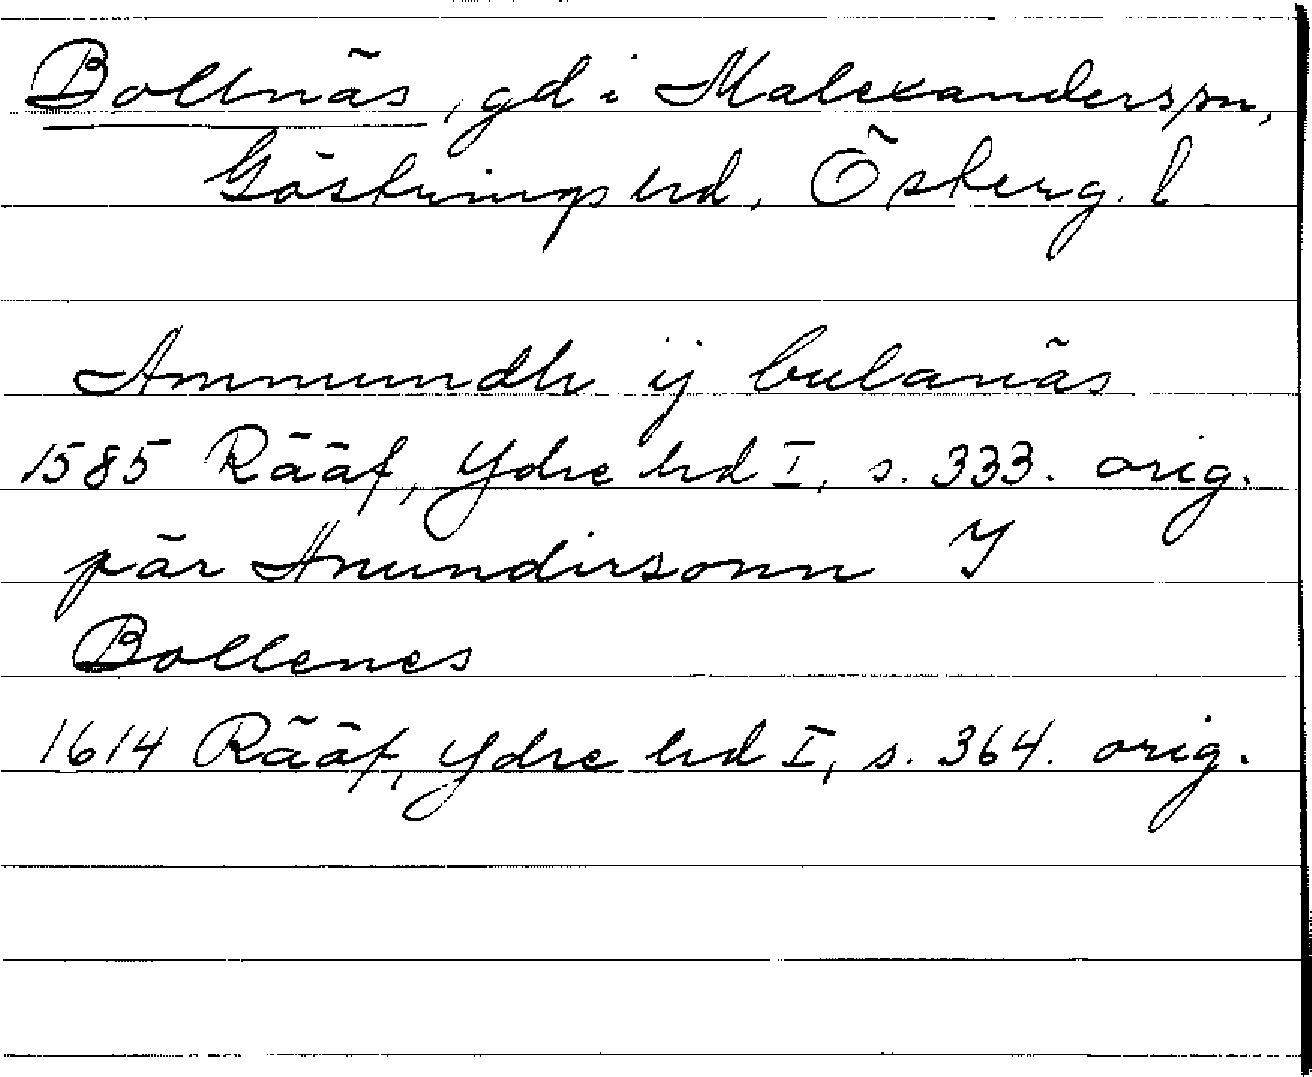 Bollnäs, gd i Malexanders sn,
Göstrings hd, Österg. l
Ammundh ij bulanäs
1585 Rääf, Ydre hd I, s. 333. orig.
pär Anundirsonn Y
Bollenes
1614 Rääf, Ydre hd I, s. 364. orig.